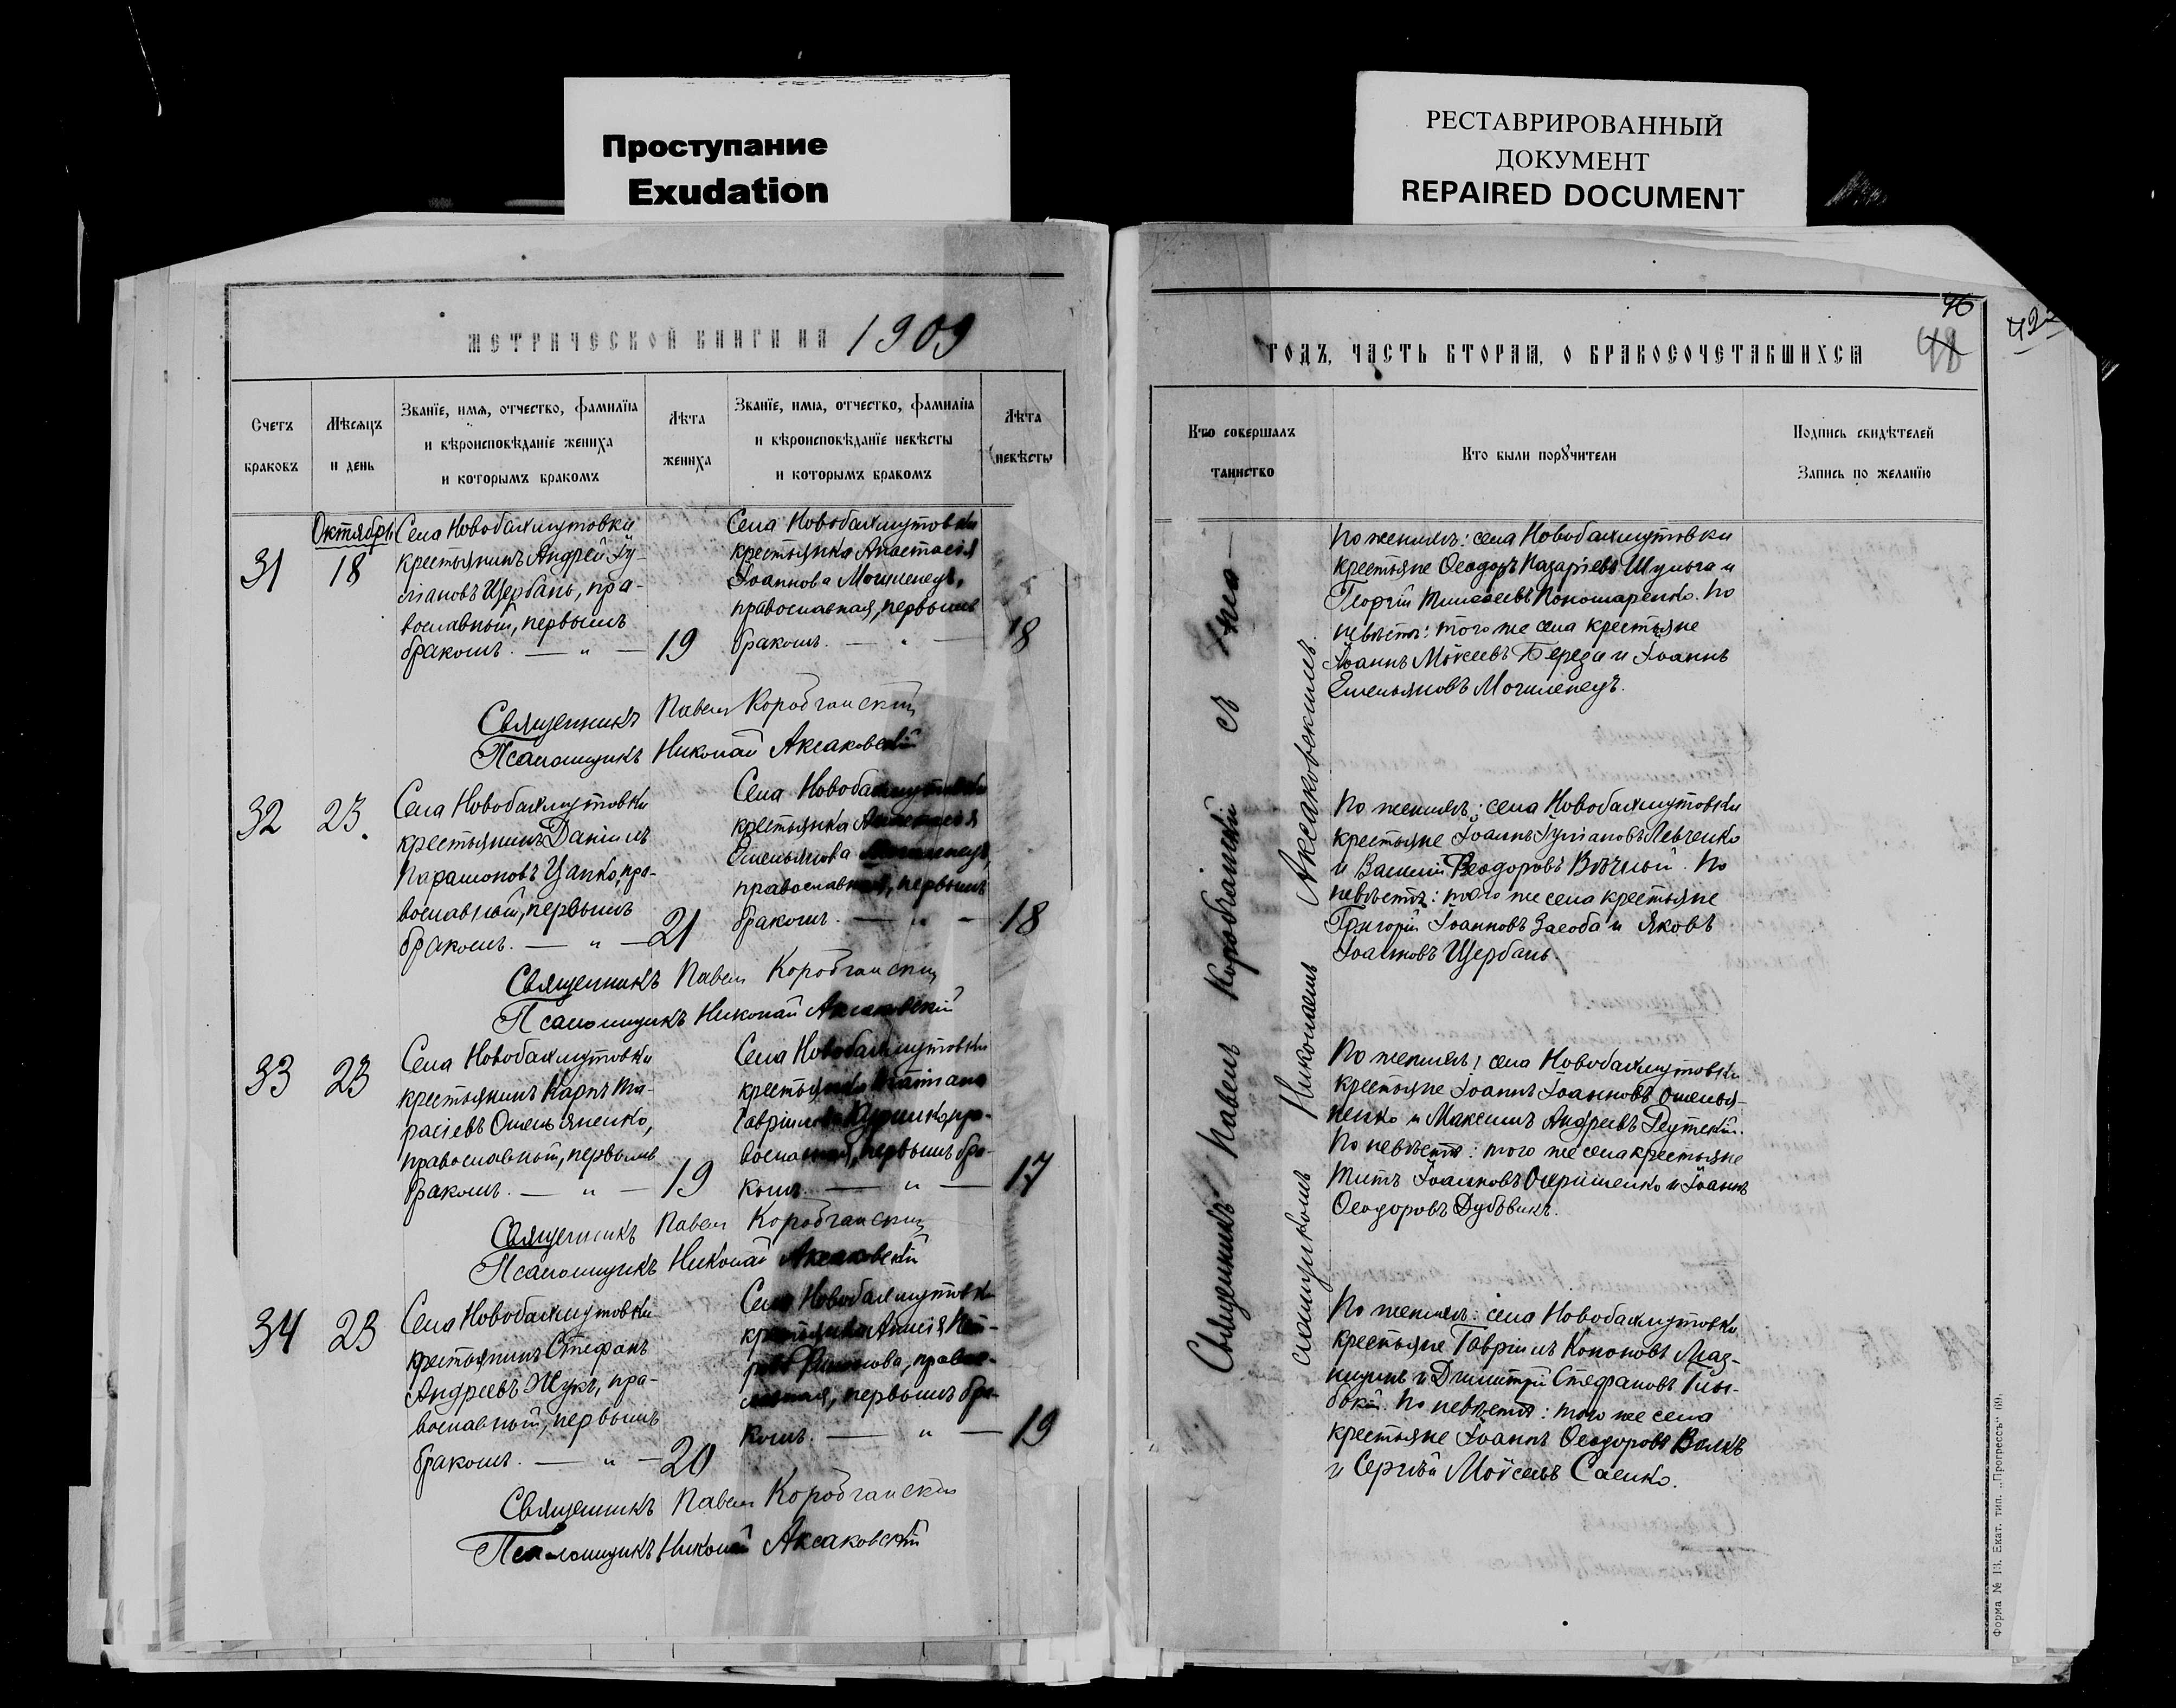 Проступание
Exudation
РЕСТАВРИРОВАННЫЙ
ДОКУМЕНТ
REPAIRED DOCUMENT
МЕТРИЧЕСКОЙ КНИГИ НА 1909
Счетъ
браковъ
Мѣсяцъ
и день
Званіе, имя, отчество, фамилія
и вѣроисповѣданіе жениха
и которымъ бракомъ
Лѣта
жениха
Званіе, имя, отчество, фамилія
и вѣроисповѣданіе невѣсты
и которымъ бракомъ
Лѣта
невѣсты
31
Октября
18
Села Новобахмутовки
крестьянинъ Андрей Іу-
ліановъ Щербань, пра-
вославный, первымъ
бракомъ. — „ — 19
Села Новобахмутовки
крестьянка Анастасія
Іоаннова Могиленецъ,
православная, первымъ
бракомъ. — „ — 18
Священникъ Павелъ Коробчанскій
Псаломщикъ Николай Аксаковскій
32
23
Села Новобахмутовки
крестьянинъ Даніилъ
Парамоновъ Цапко, пра-
вославный, первымъ
бракомъ. — „ — 21
Села Новобахмутовки
крестьянка Анастасія
Емельянова Могиленецъ,
православная, первымъ
бракомъ. — „ — 18
Священникъ Павелъ Коробчанскій
Псаломщикъ Николай Аксаковскій
33
23
Села Новобахмутовки
крестьянинъ Карпъ Та-
расіевъ Омельяненко,
православный, первымъ
бракомъ. — „ — 19
Села Новобахмутовки
крестьянка
Гавріилова пра-
вославная, первымъ бра-
комъ. — „ — 17
Священникъ Павелъ Коробчанскій
Псаломщикъ Николай Аксаковскій
34
23
Села Новобахмутовки
крестьянинъ Стефанъ
Андреевъ Жукъ, пра-
вославный, первымъ
бракомъ. — „ — 20
Села Новобахмутовки
крестьянка Анисія Пет-
рова правос-
лавная, первымъ бра-
комъ. — „ — 19
Священникъ Павелъ Коробчанскій
Псаломщикъ Николай Аксаковскій
46
48
422
ГОДЪ, ЧАСТЬ ВТОРАЯ, О БРАКОСОЧЕТАВШИХСЯ
Кто совершалъ
таинство
Кто были поручители
Подпись свидѣтелей
Запись по желанію
Священникъ Павелъ Коробчанскій съ
псаломщикомъ Николаемъ Аксаковскимъ.
По женихѣ: села Новобахмутовки
крестьяне Ѳеодоръ Назаріевъ Шульга и
Георгій Тимоѳеевъ Пономаренко. По
невѣстѣ: того же села крестьяне
Іоаннъ Моѵсеевъ Береза и Іоаннъ
Емельяновъ Могиленецъ.
По женихѣ: села Новобахмутовки
крестьяне Іоаннъ Іуліановъ Левченко
и Василій Ѳеодоровъ Вѣчный. По
невѣстѣ: того же села крестьяне
Григорій Іоанновъ Заёба и Яковъ
Іоанновъ Щербань.
По женихѣ: села Новобахмутовки
крестьяне Іоаннъ Іоанновъ Омелья-
ненко и Максимъ Андреевъ Деутскій.
По невѣстѣ: того же села крестьяне
Титъ Іоанновъ Охріменко и Іоаннъ
Ѳеодоровъ Дубовикъ.
По женихѣ: села Новобахмутовки
крестьяне Гавріилъ Кононовъ Маз-
ницинъ и Димитрій Стефановъ Глы-
бокій. По невѣстѣ: того же села
крестьяне Іоаннъ Ѳеодоровъ Волкъ
и Сергѣй Моѵсеевъ Саенко.
Форма № 13. Екат. тип. „Прогрессъ“ 69.